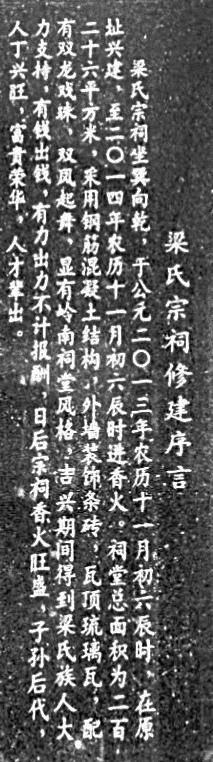 梁氏宗祠修建序言
梁氏宗祠坐巽向乾，于公元二〇一三年农历十一月初六辰时，在原
址兴建，至二〇一四年农历十一月初六辰时进香火。祠堂总面积为二百
二十六平方米，采用钢筋混凝土结构，外墙装饰条砖，瓦顶琉璃瓦，配
有双龙戏珠，双凤起舞，显有岭南祠堂风格，吉兴期间得到梁氏族人大
力支持，有钱出钱，有力出力不计报酬，日后宗祠香火旺盛，子孙后代，
人丁兴旺，富贵荣华，人才辈出。